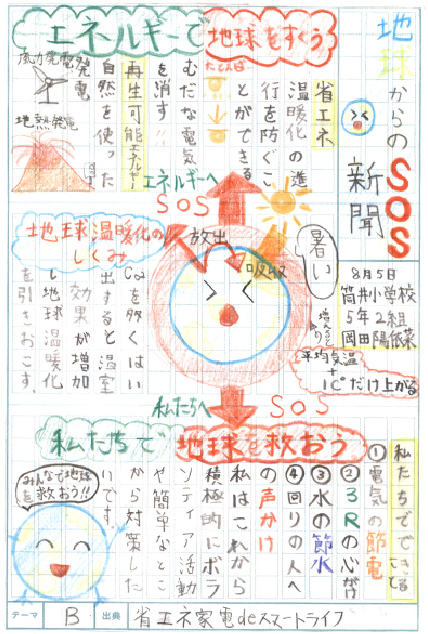 地球からのSOS新聞
8月5日
筒井小学校
5年2組
岡田陽依菜
エネルギーで地球をすくう
省エネ
温暖化の進
行を防ぐこ
とができる
たとえば
むだな電気
を消す!!
再生可能エネルギー
自然を使った
発電
風力発電
地熱発電
エネルギーへ
SOS
放出
吸収
暑い
増えると
平均気温
+
1℃だけ上がる
地球温暖化の
しくみ
CO₂を多くはい
出すると温室
効果が増加
し地球温暖化
を引きおこす
私たちへ
SOS
私たちで地球を救おう
私たちでできる
①電気の節電
②3Rの心がけ
③水の節水
④回りの人へ
の声かけ
私はこれから
積極的にボラ
ンティア活動
や簡単なとこ
から対策した
いです。
みんなで地球
を救おう!!
テーマ B 出典 省エネ家電deスマートライフ